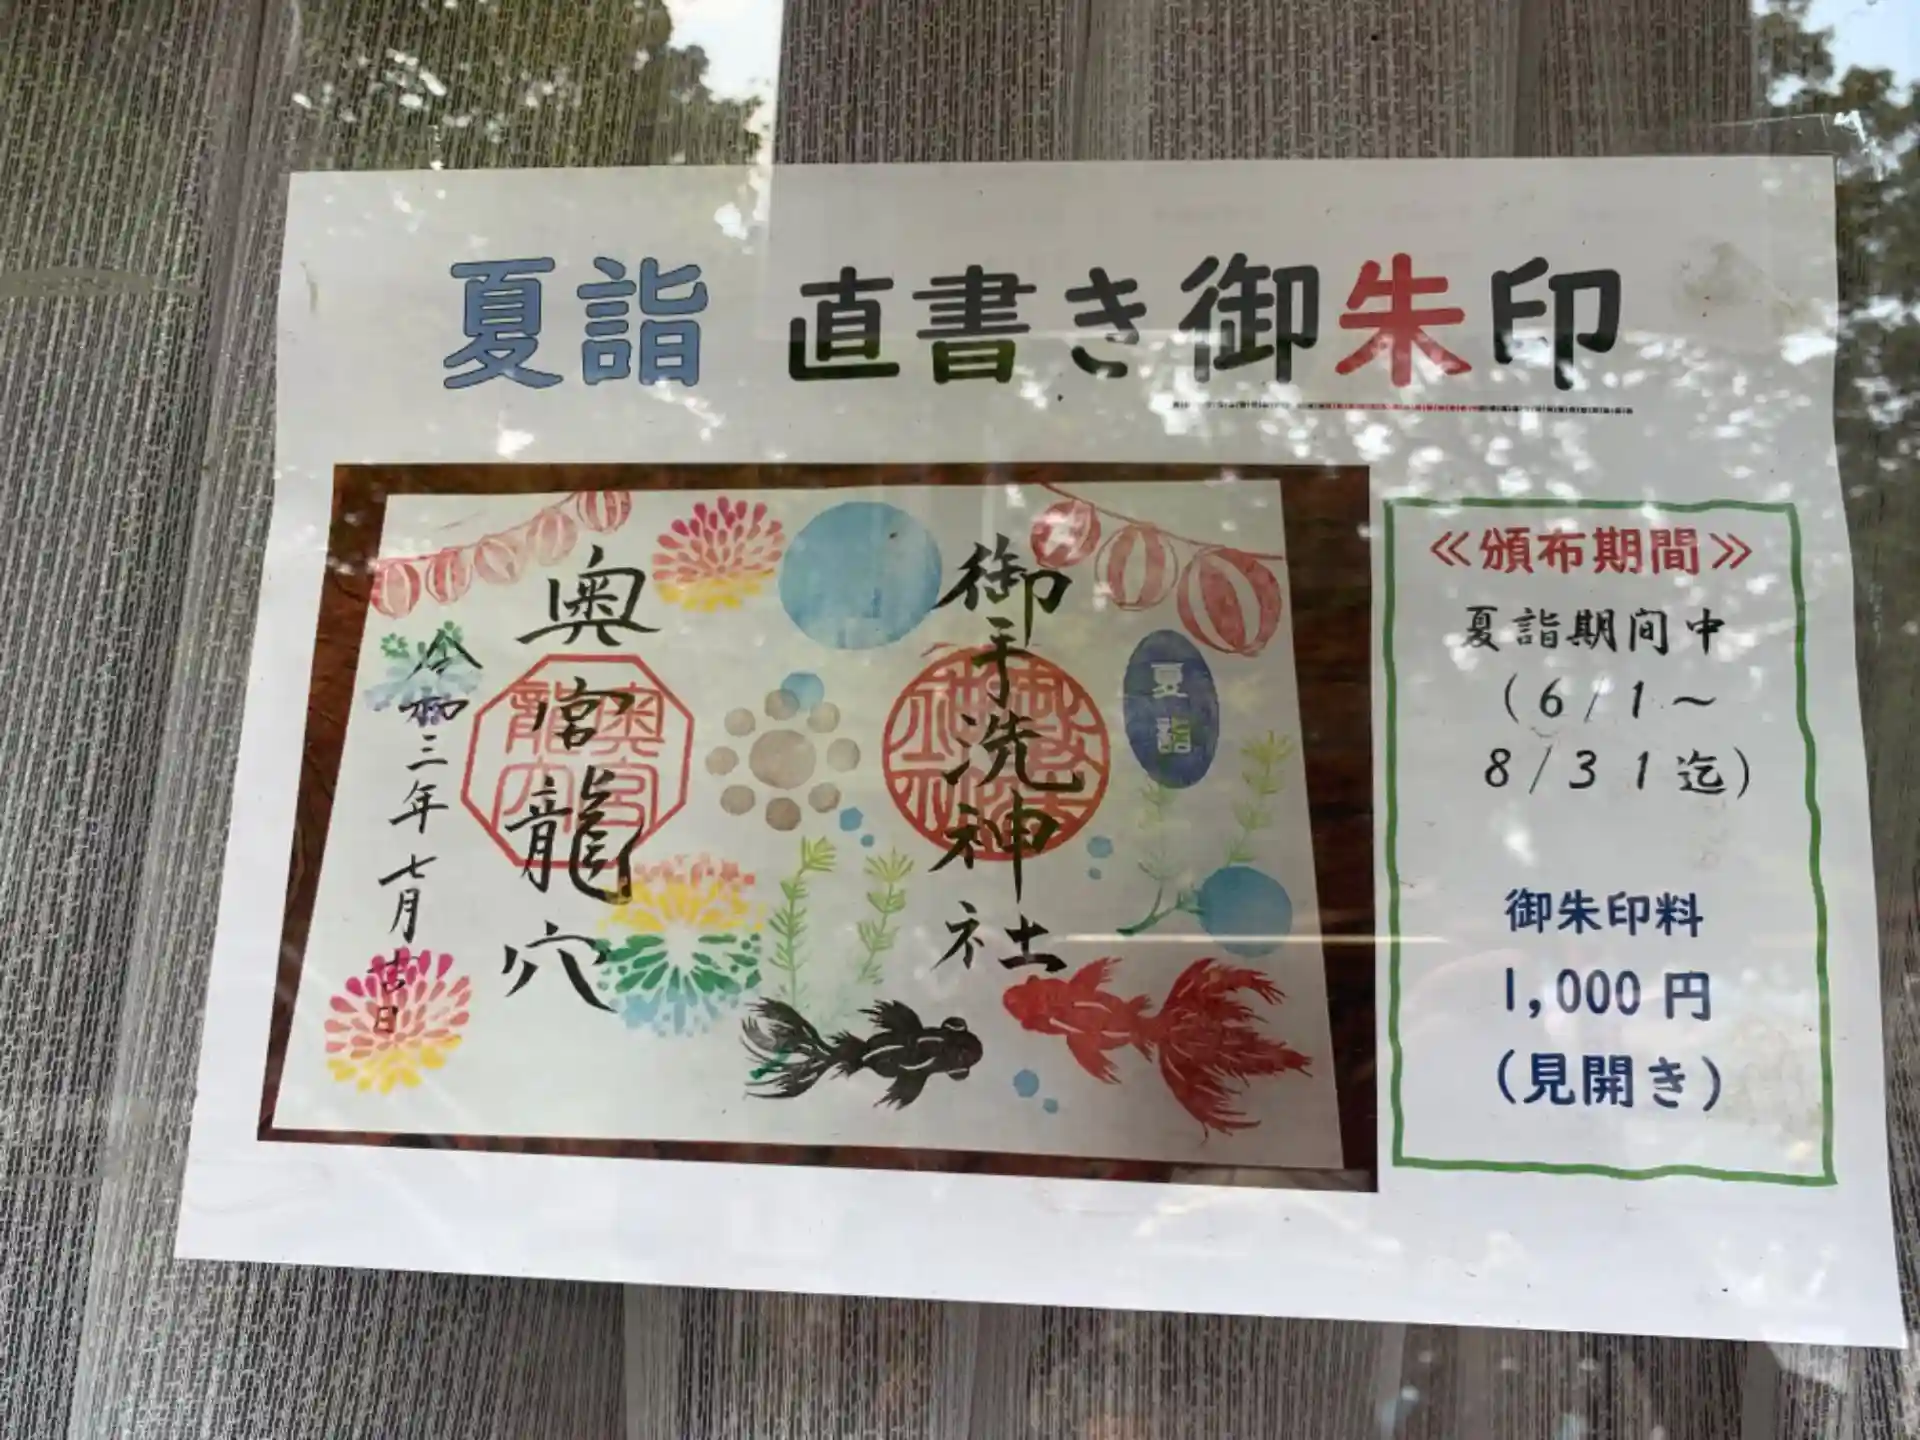 夏詣 直書き御朱印
御手洗神社
夏詣
奥宮龍穴
令和三年七月吉日
≪頒布期間≫
夏詣期間中
(6/1～
8/31迄)
御朱印料
1,000円
(見開き)